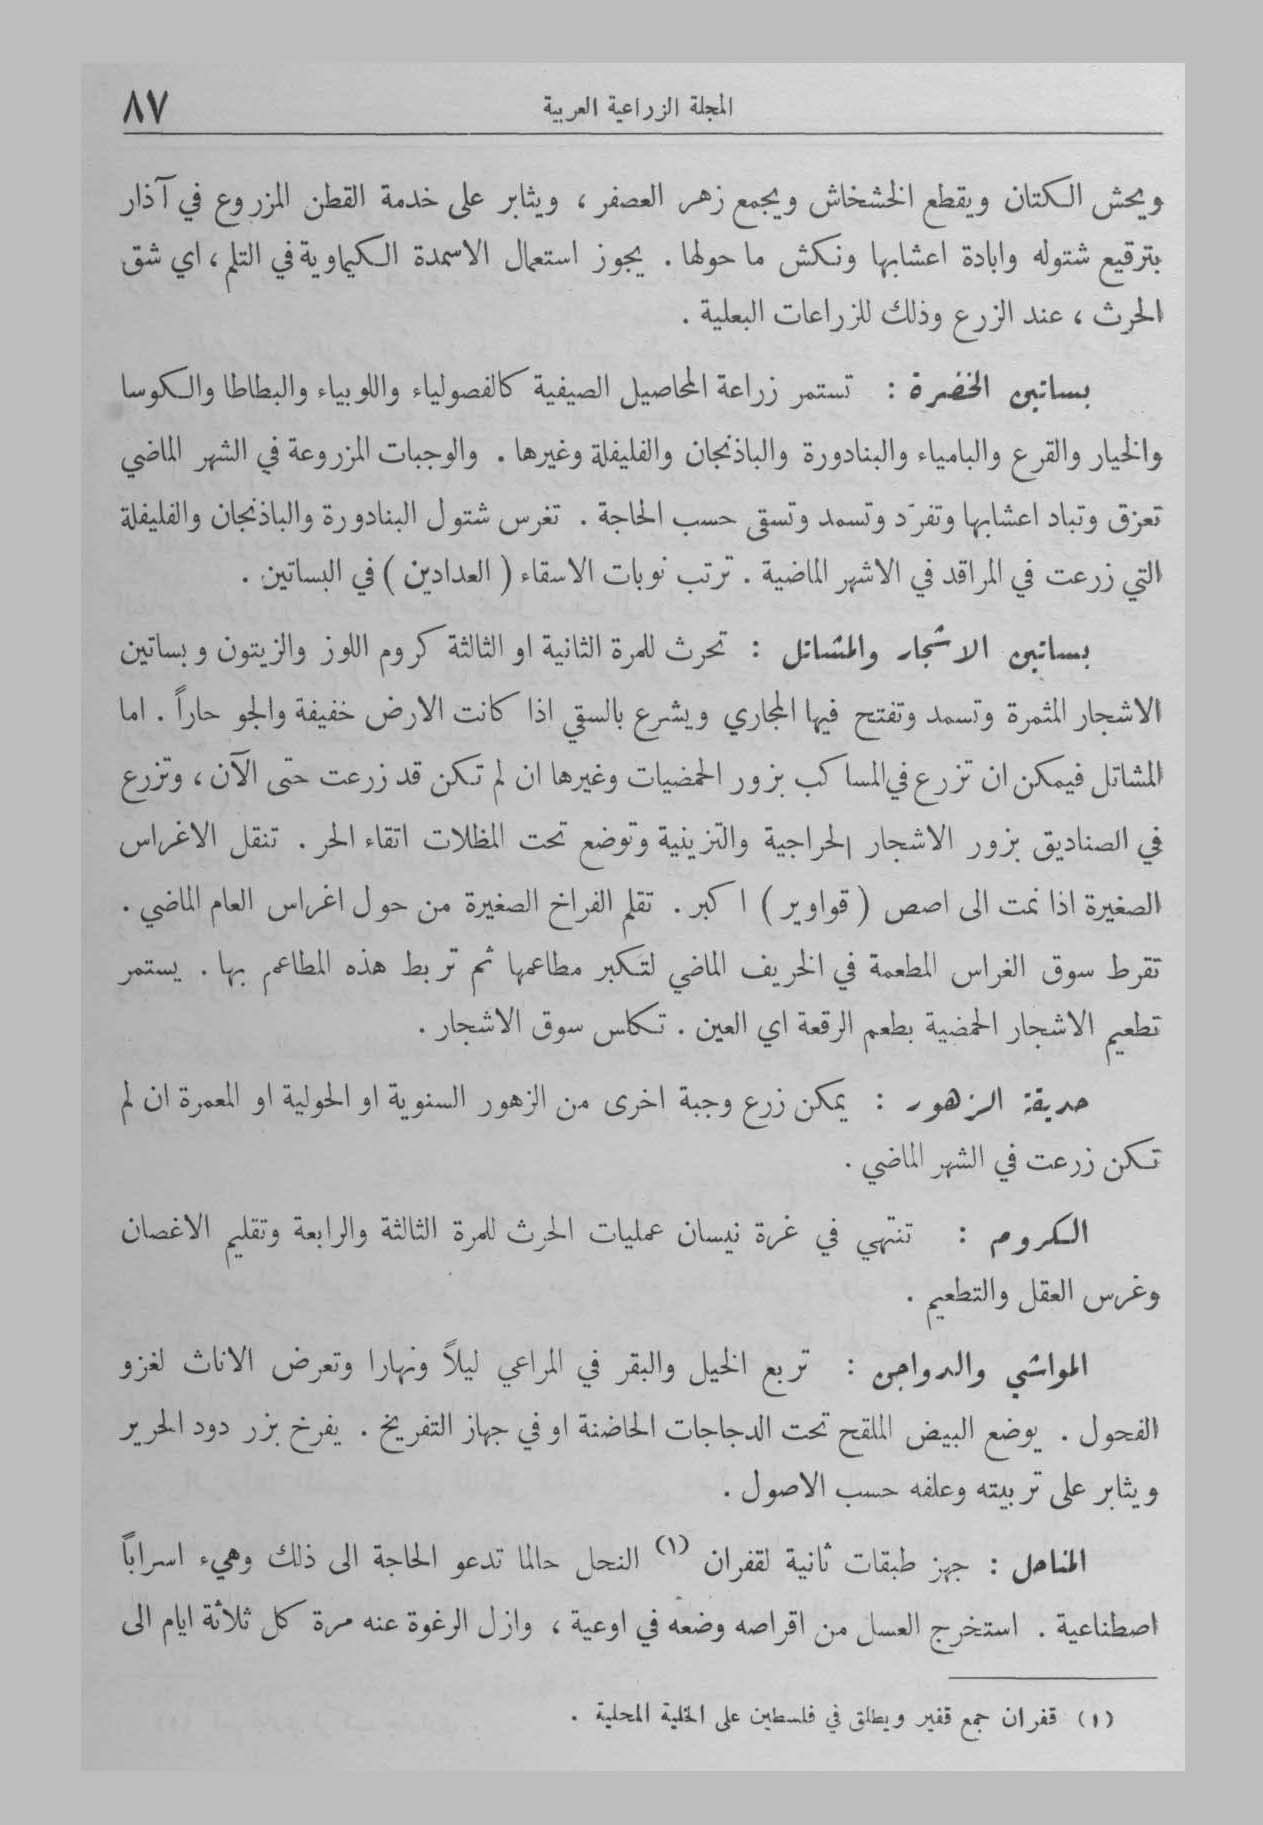 المجلة الزراعية العربية ٨٧
ويحش الكتان ويقطع الخشخاش ويجمع زهر العصفر ، ويثابر على خدمة القطن المزروع في آذار
بترقيع شتوله وابادة اعشابها ونكش ما حولها . يجوز استعمال الاسمدة الكيماوية في التلم ، اي شق
الحرث ، عند الزرع وذلك للزراعات البعلية .
بساتين الخضرة : تستمر زراعة المحاصيل الصيفية كالفصولياء واللوبياء والبطاطا والكوسا
والخيار والقرع والبامياء والبنادورة والباذنجان والفليفلة وغيرها . والوجبات المزروعة في الشهر الماضي
تعزق وتباد اعشابها وتفرّد وتسمد وتسقى حسب الحاجة . تغرس شتول البنادورة والباذنجان والفليفلة
التي زرعت في المراقد في الاشهر الماضية . ترتب نوبات الاسقاء ( العدادين ) في البساتين .
بساتين الاشجار والمشاتل : تحرث للمرة الثانية او الثالثة كروم اللوز والزيتون وبساتين
الاشجار المثمرة وتسمد وتفتح فيها المجاري ويشرع بالسقي اذا كانت الارض خفيفة والجو حاراً . اما
المشاتل فيمكن ان تزرع في المساكب بزور الحمضيات وغيرها ان لم تكن قد زرعت حتى الآن ، وتزرع
في الصناديق بزور الاشجار الحراجية والتزينية وتوضع تحت المظلات اتقاء الحر . تنقل الاغراس
الصغيرة اذا نمت الى اصص ( قواوير ) اكبر . تقلم الفراخ الصغيرة من حول اغراس العام الماضي .
تقرط سوق الغراس المطعمة في الخريف الماضي لتكبر مطاعمها ثم تربط هذه المطاعم بها . يستمر
تطعيم الاشجار الحمضية بطعم الرقعة اي العين . تكلس سوق الاشجار .
حديقة الزهور : يمكن زرع وجبة اخرى من الزهور السنوية او الحولية او المعمرة ان لم
تكن زرعت في الشهر الماضي .
الكروم : تنتهي في غرة نيسان عمليات الحرث للمرة الثالثة والرابعة وتقليم الاغصان
وغرس العقل والتطعيم .
المواشي والدواجن : تربع الخيل والبقر في المراعي ليلاً ونهارا وتعرض الاناث لغزو
الفحول . يوضع البيض الملقح تحت الدجاجات الحاضنة او في جهاز التفريخ . يفرخ بزر دود الحرير
ويثابر على تربيته وعلفه حسب الاصول .
المناحل : جهز طبقات ثانية لقفران (١) النحل حالما تدعو الحاجة الى ذلك وهيء اسراباً
اصطناعية . استخرج العسل من اقراصه وضعه في اوعية ، وازل الرغوة عنه مرة كل ثلاثة ايام الى
(١) قفران جمع قفير ويطلق في فلسطين على الخلية المحلية .